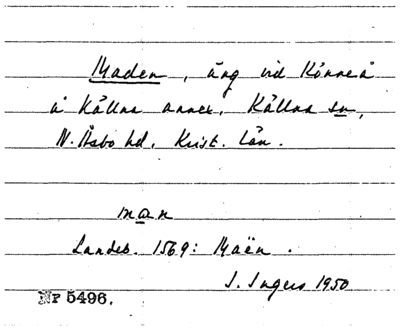 Maden, äng vid Rönneå
å Källna annex. Källna sn,
N. Åsbo hd. Krist. län.
man
Landeb. 1569: Maën.
I. Ingers 1950
Nr 5496.